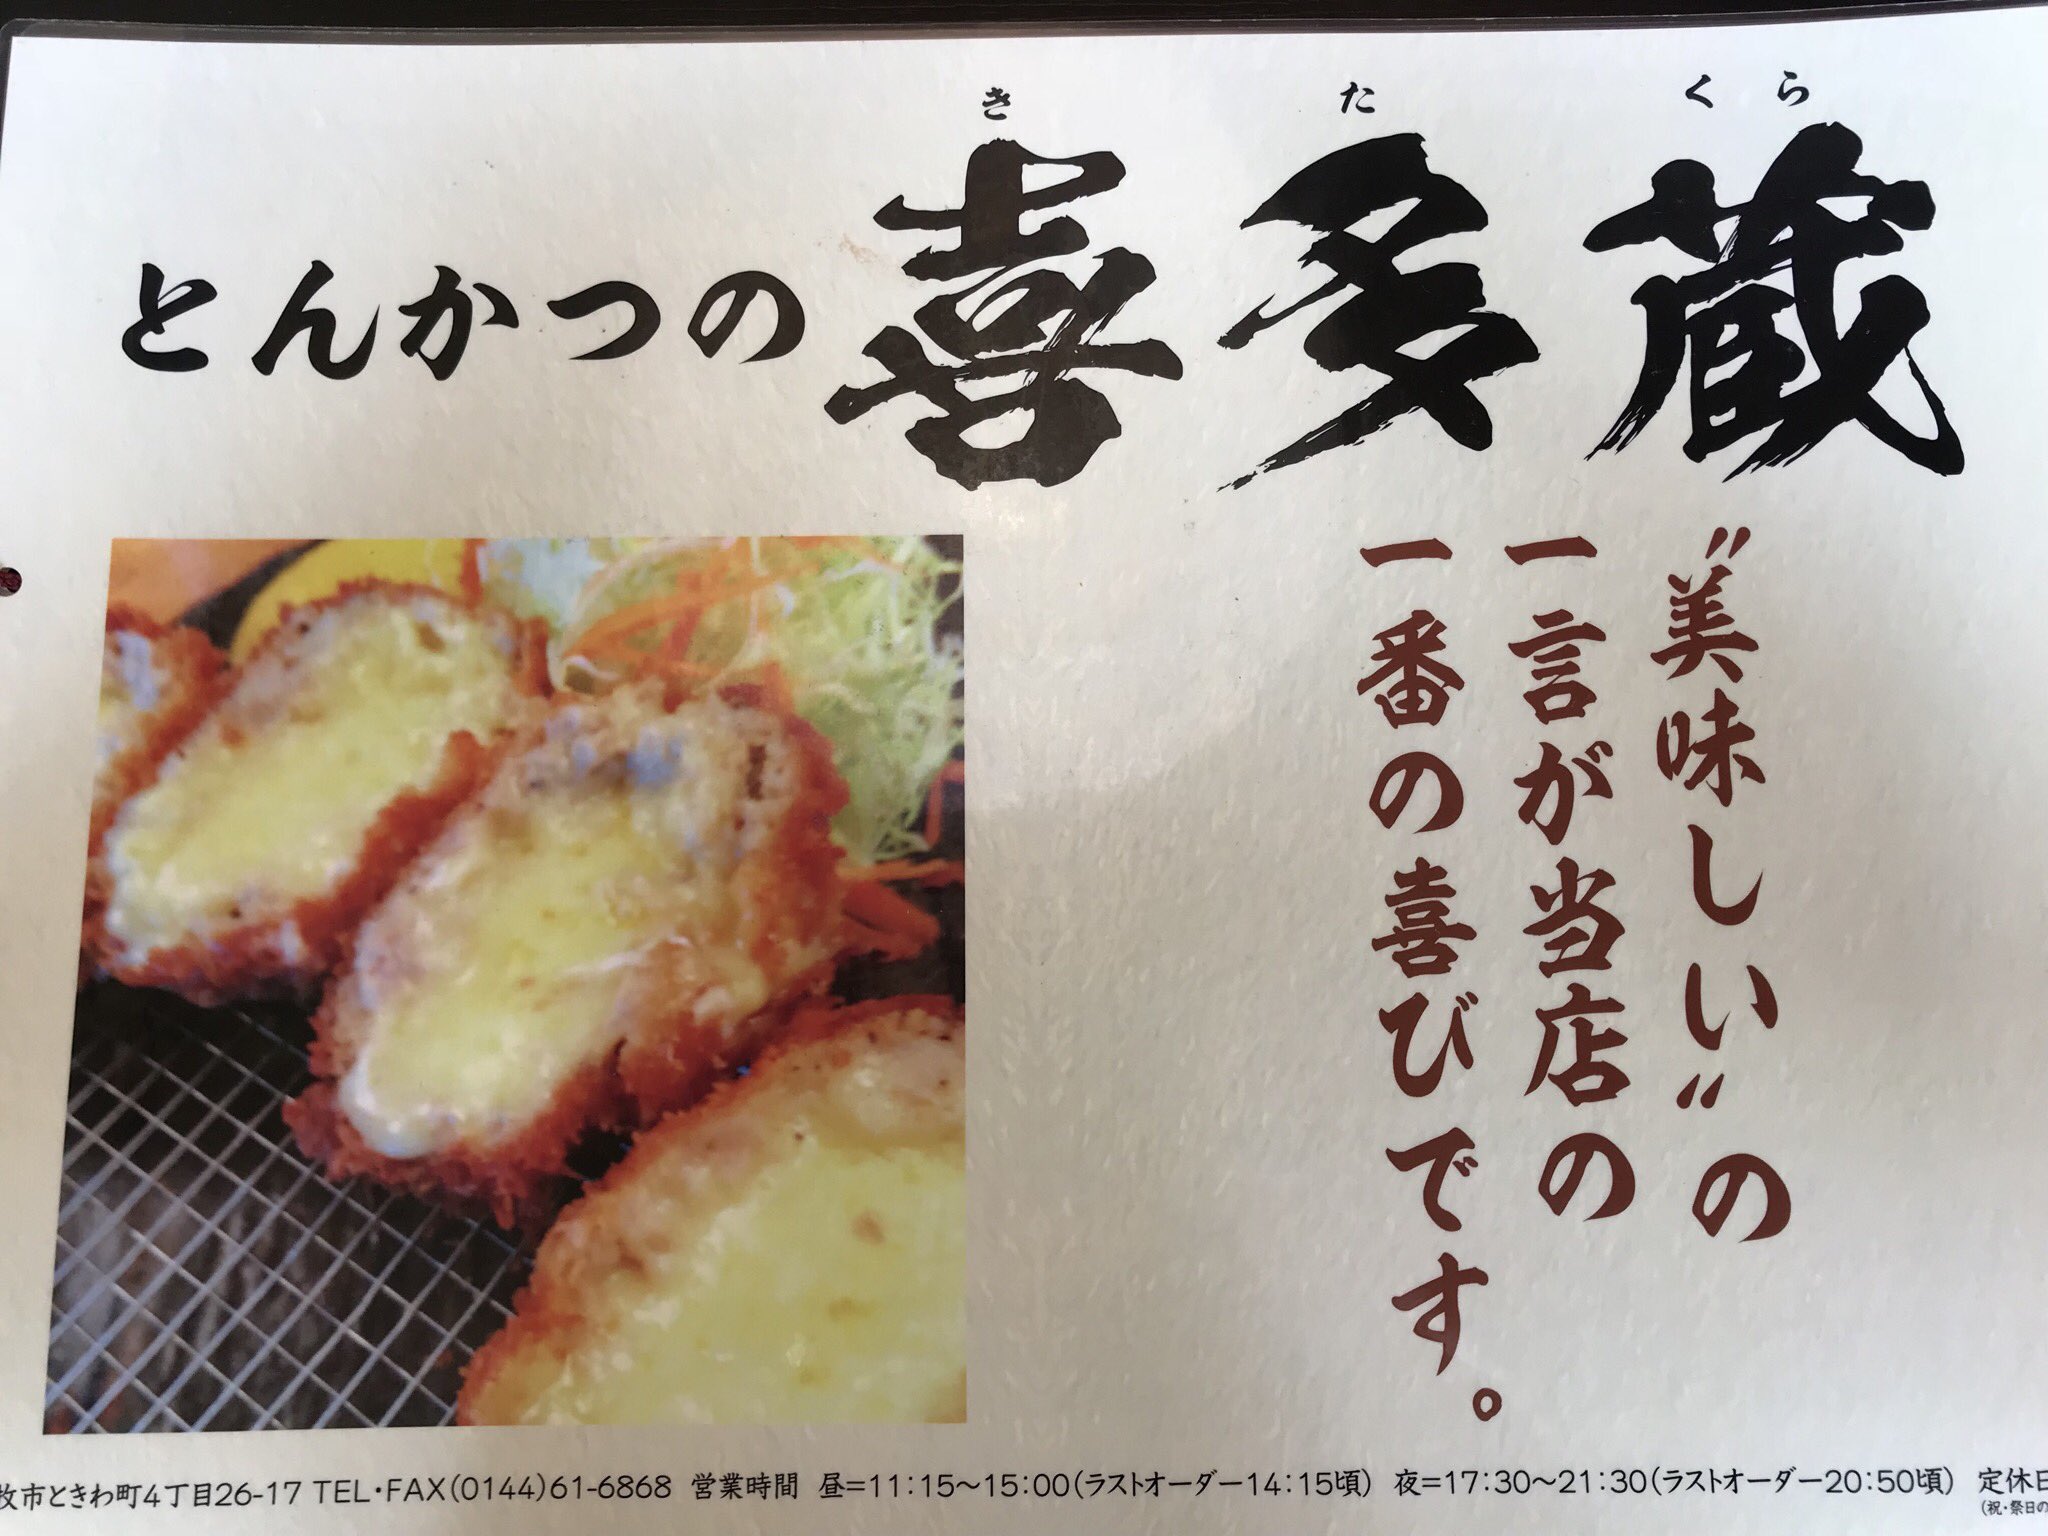 きたくら
とんかつの喜多蔵
"美味しい"の
一言が当店の
一番の喜びです。
牧市ときわ町4丁目26-17 TEL・FAX(0144)61-6868 営業時間 昼=11:15〜15:00(ラストオーダー14:15頃) 夜=17:30〜21:30(ラストオーダー20:50頃) 定休日
(祝・祭日の